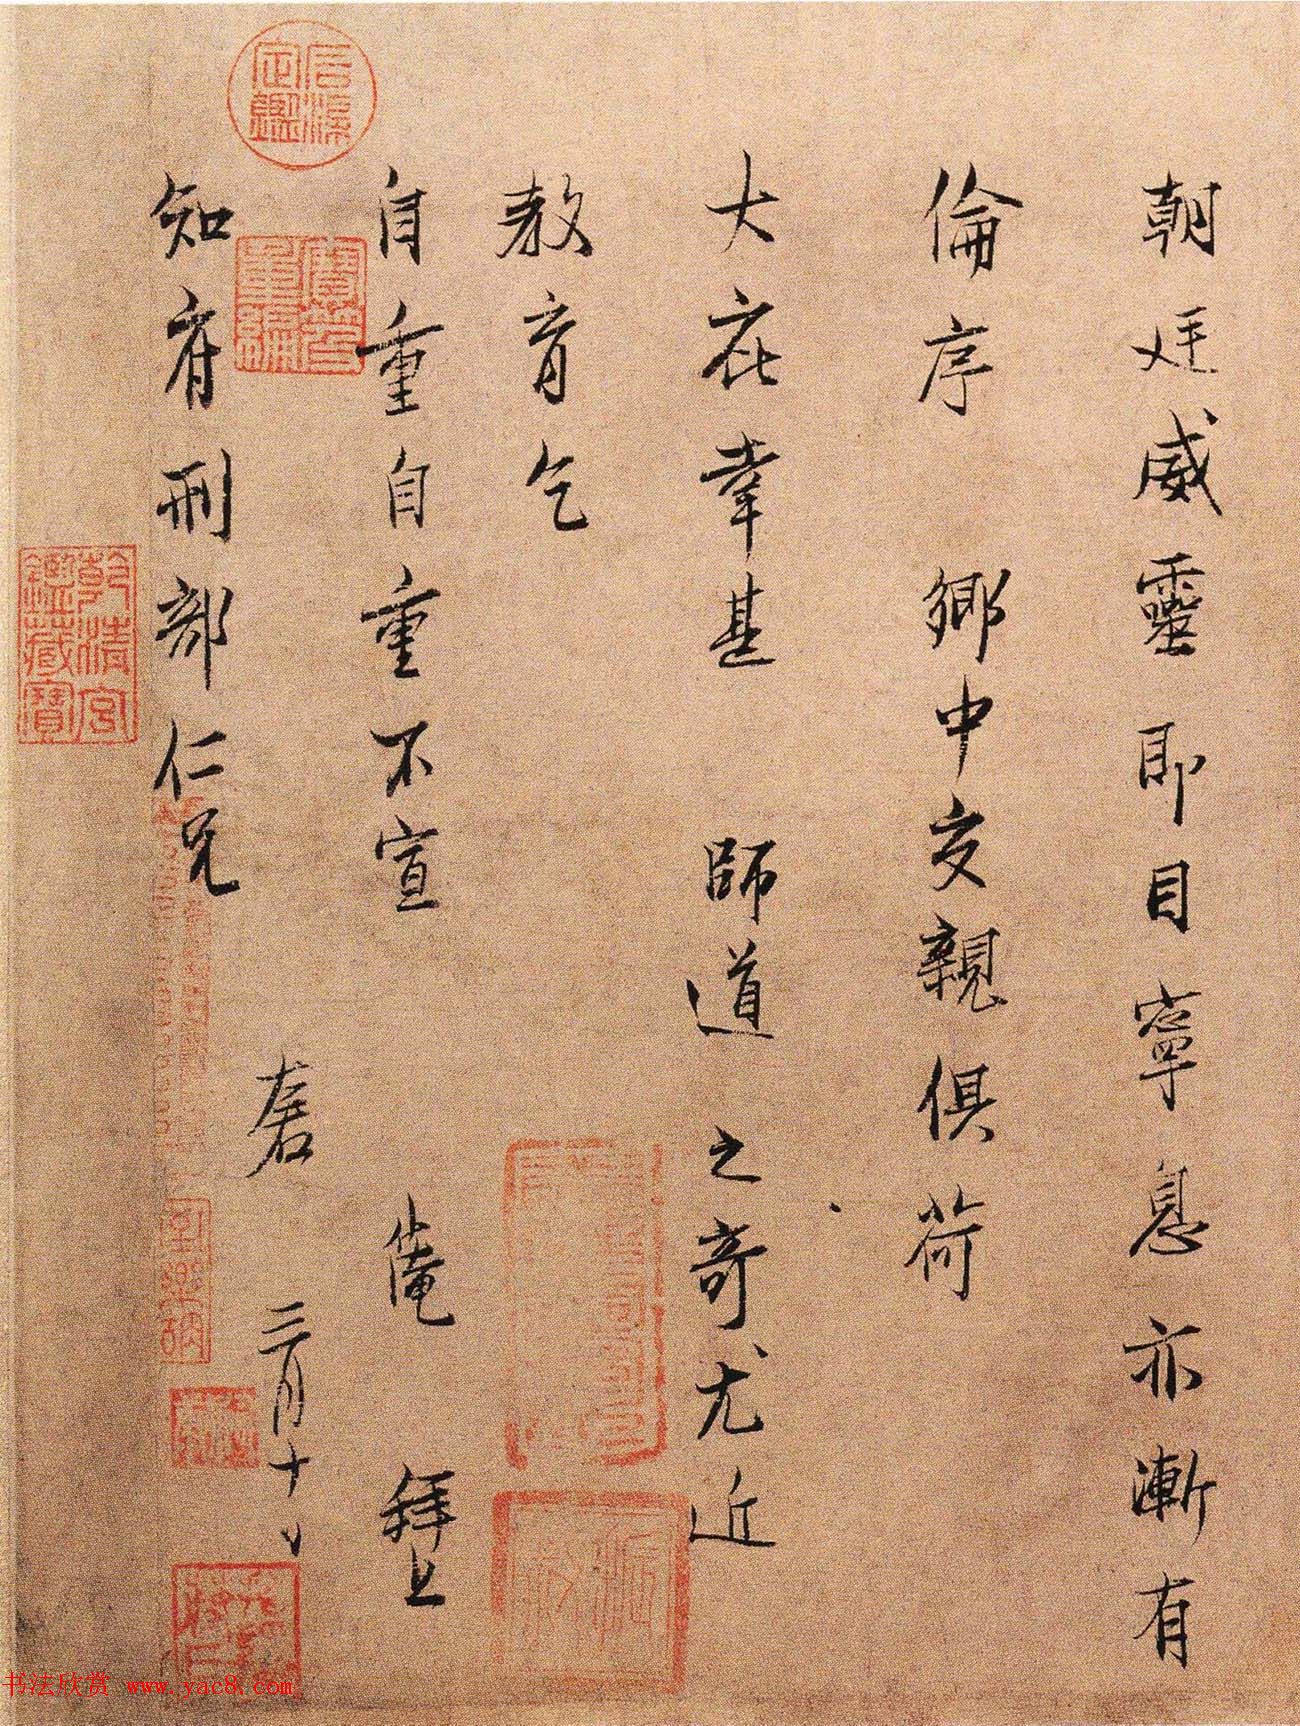 朝廷威靈即目寧息亦漸有
倫序 鄉中交親俱荷
大庇幸甚 師道之奇尤近
教育乞
自重自重不宣 俺 拜上
知府刑部仁兄 三月十
石渠定鑑
寶笈重編
乾清宮鑑藏寶
书法欣赏 www.yac8.com